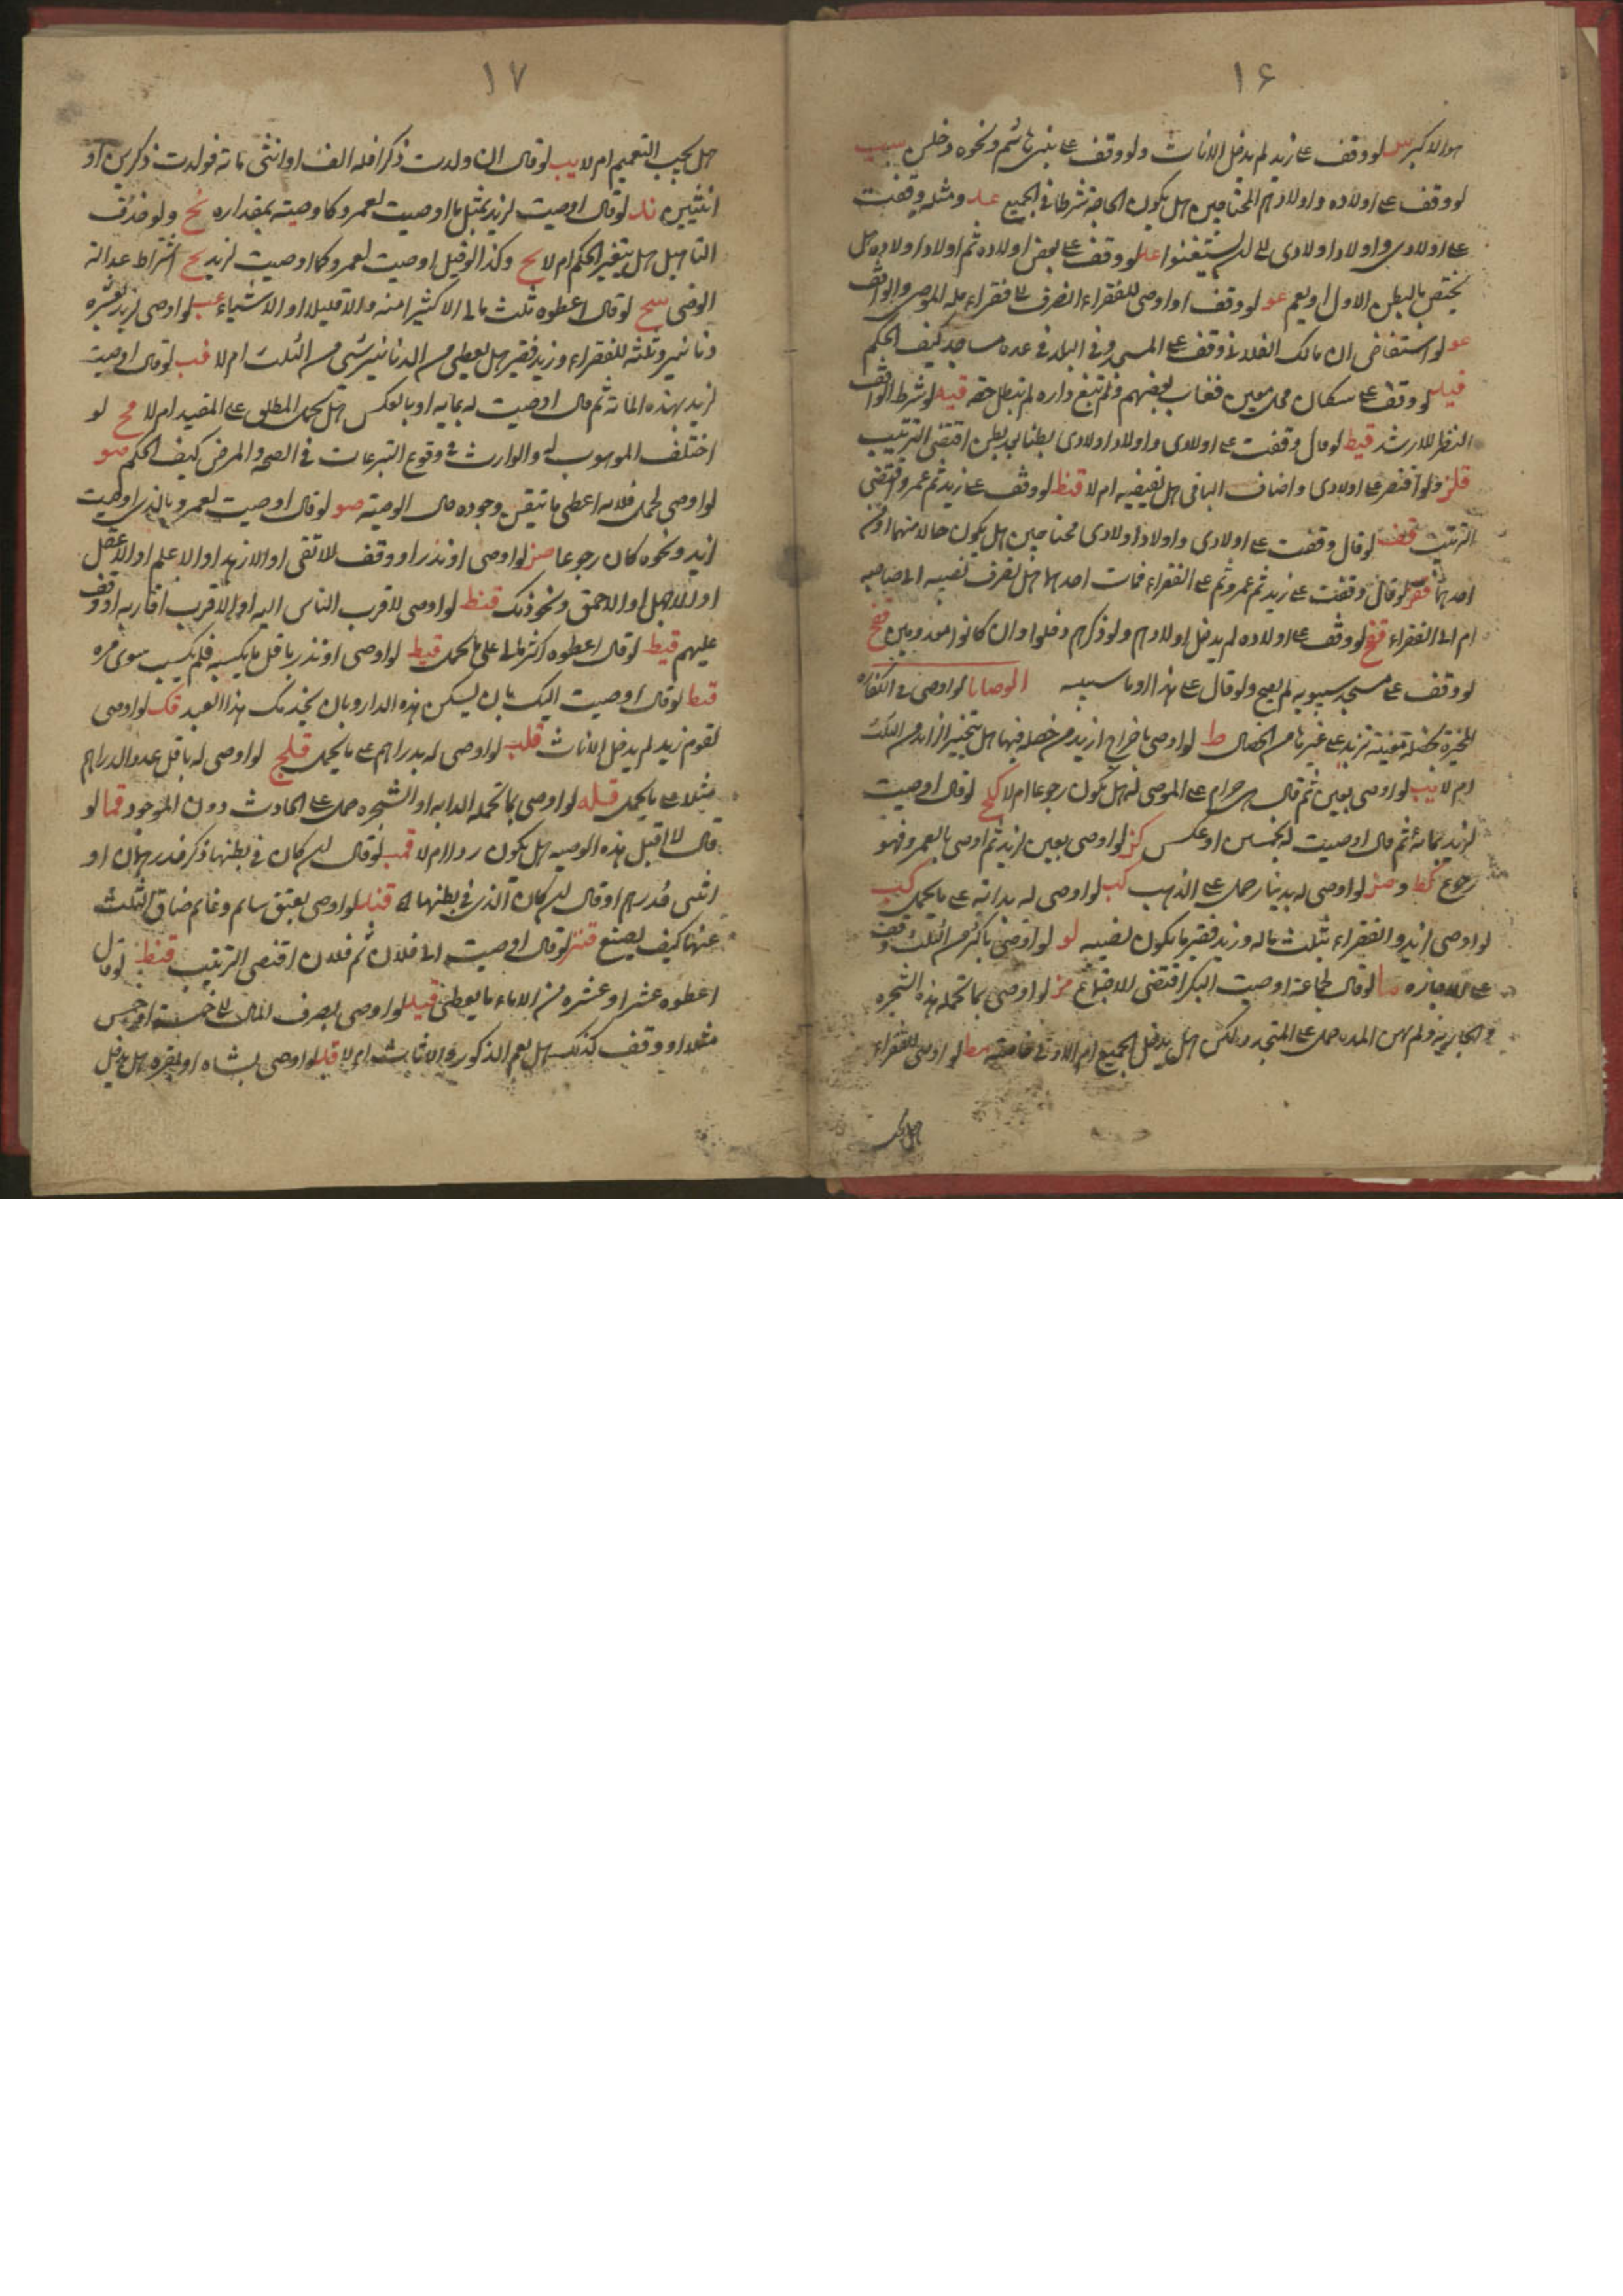 ١۶
هو الاكبر لو وقف على زيد لم يدخل الاناث ولو وقف على بنى هاشم ونحوه دخلن
لو وقف على اولاده واولادهم المحتاجين هل يكون الحاجة شرطا فى الجميع ومثله وقفت
على اولادى واولاد اولادى الا ان يستغنوا لو وقف على بعض اولاده ثم اولاد اولاده هل
يختص بالبطن الاول او يعم عو لو وقف او اوصى للفقراء انصرف الى فقراء ملة الموصى والواقف
عو لو استفاض ان مالك الفلانى وقف على المسجد وفى البلد فى عدة مساجد كيف الحكم
لو وقف على سكان محلة معين فغاب بعضهم ولم تبع داره لم تبطل حقه لو شرط الواقف
النظر للارشد قيط لو قال وقفت على اولادى واولاد اولادى بطنا بعد بطن اقتضى الترتيب
قلز ولو اقتصر على اولادى واضاف الباقى هل يقتضيه ام لا قنط لو وقف على زيد ثم عمرو اقتضى
الترتيب لو قال وقفت على اولادى واولاد اولادى محتاجين هل يكون حالا منهما او من
احدهما لو قال وقفت على زيد ثم عمرو ثم على الفقراء فمات احدهما هل يصرف نصيبه الى صاحبه
ام الى الفقراء قفح لو وقف على اولاده لم يدخل اولادهم ولو ذكرهم دخلوا وان كانوا معدومين
لو وقف على مسجد سيبويه لم يصح ولو قال على هذا او ما سيبنيه الوصايا لو اوصى فى الكفارة
المخيرة بخصلة معينة تزيد على غيرها من الخصال ط لو اوصى باخراج ازيد من خصلة فيها هل يتخير الزايد من الثلث
ام لا يب لو اوصى بعين ثم قال هى حرام على الموصى له هل يكون رجوعا ام لا لو قال اوصيت
لزيد بمائة ثم قال اوصيت له بخمسين او عكس كز لو اوصى بعين لزيد ثم اوصى بها لعمرو فهو
رجوع كط و لو اوصى له بدينار حمل على الذهب لو اوصى له بدابة على ما يحمل
لو اوصى لزيد والفقراء بثلث ماله وزيد فقير ما يكون نصيبه لو لو اوصى باكثر من الثلث وقف
على الاجازة لو قال لجماعة اوصيت اليكم اقتضى الاجتماع مز لو اوصى بما تحمله هذه الشجرة
والجارية ولم يعين المدة حمل على المتجدد ولكن هل يدخل الجميع ام الاول خاصة مط لو اوصى للفقراء
هل يجب
١٧
هل يجب التعميم ام لا يب لو قال ان ولدت ذكرا فله الف او انثى مائة فولدت ذكرين او
انثيين لو قال اوصيت لزيد بمثل ما اوصيت لعمرو كا وصيته بمقداره نح ولو حذف
التا هل يتغير الحكم ام لا وكذا لو قيل اوصيت لعمرو كما اوصيت لزيد اشتراط عدالة
الوصى لو قال اعطوه ثلث مالى الا كثيرا منه والا قليلا او الا شياء لو اوصى لزيد بعشرة
دنانير وثلثه للفقراء وزيد فقير هل يعطى من الدنانير شئ من الثلث ام لا لو قال اوصيت
لزيد بهذه المائة ثم قال اوصيت له بمايه او بالعكس هل يحمل المطلق على المقيد ام لا لو
اختلف الموهوب له والوارث فى وقوع التبرعات فى الصحة والمرض كيف الحكم صو
لو اوصى لحمل فلانه اعطى ما يتيقن وجوده حال الوصيته صو لو قال اوصيت لعمرو بالذى اوصيت
لزيد ونحوه كان رجوعا لو اوصى او نذر او وقف للاتقى او الازهد او الاعلم او الاعقل
او للاجهل او الاحمق ونحو ذلك قنط لو اوصى لاقرب الناس اليه او الاقرب اقاربه او وقف
عليهم قيط لو قال اعطوه اكثر مالى على ما يحمل قيط لو اوصى او نذر باقل ما يكسبه فلم يكسب سوى مره
قيط لو قال اوصيت اليك بان يسكن هذه الدار وبان يخدمك هذا العبد قك لو اوصى
لقوم زيد لم يدخل الاناث قلب لو اوصى له بدراهم على ما يحمل قلج لو اوصى له باقل عدد الدراهم
مثلا على ما يحمل قله لو اوصى بما تحمله الدابه او الشجرة حمل على الحادث دون الموجود قما لو
قال لا اقبل هذه الوصيه هل يكون ردا ام لا قمب لو قال ان كان فى بطنها ذكر فدرهمان او
انثى فدرهم او قال ان كان الذى فى بطنها لو اوصى بعتق سالم وغانم ضاق الثلث
عنهما كيف يصنع لو قال اوصيت الى فلان ثم فلان اقتضى الترتيب قنط لو قال
اعطوه عشرا او عشرة من الاماء ما يعطى لو اوصى بصرف المال الى خمسة او خمس
مثلا او وقف كذلك هل يعم الذكور والاناث ام لا لو اوصى بشاة او بقرة هل يدخل